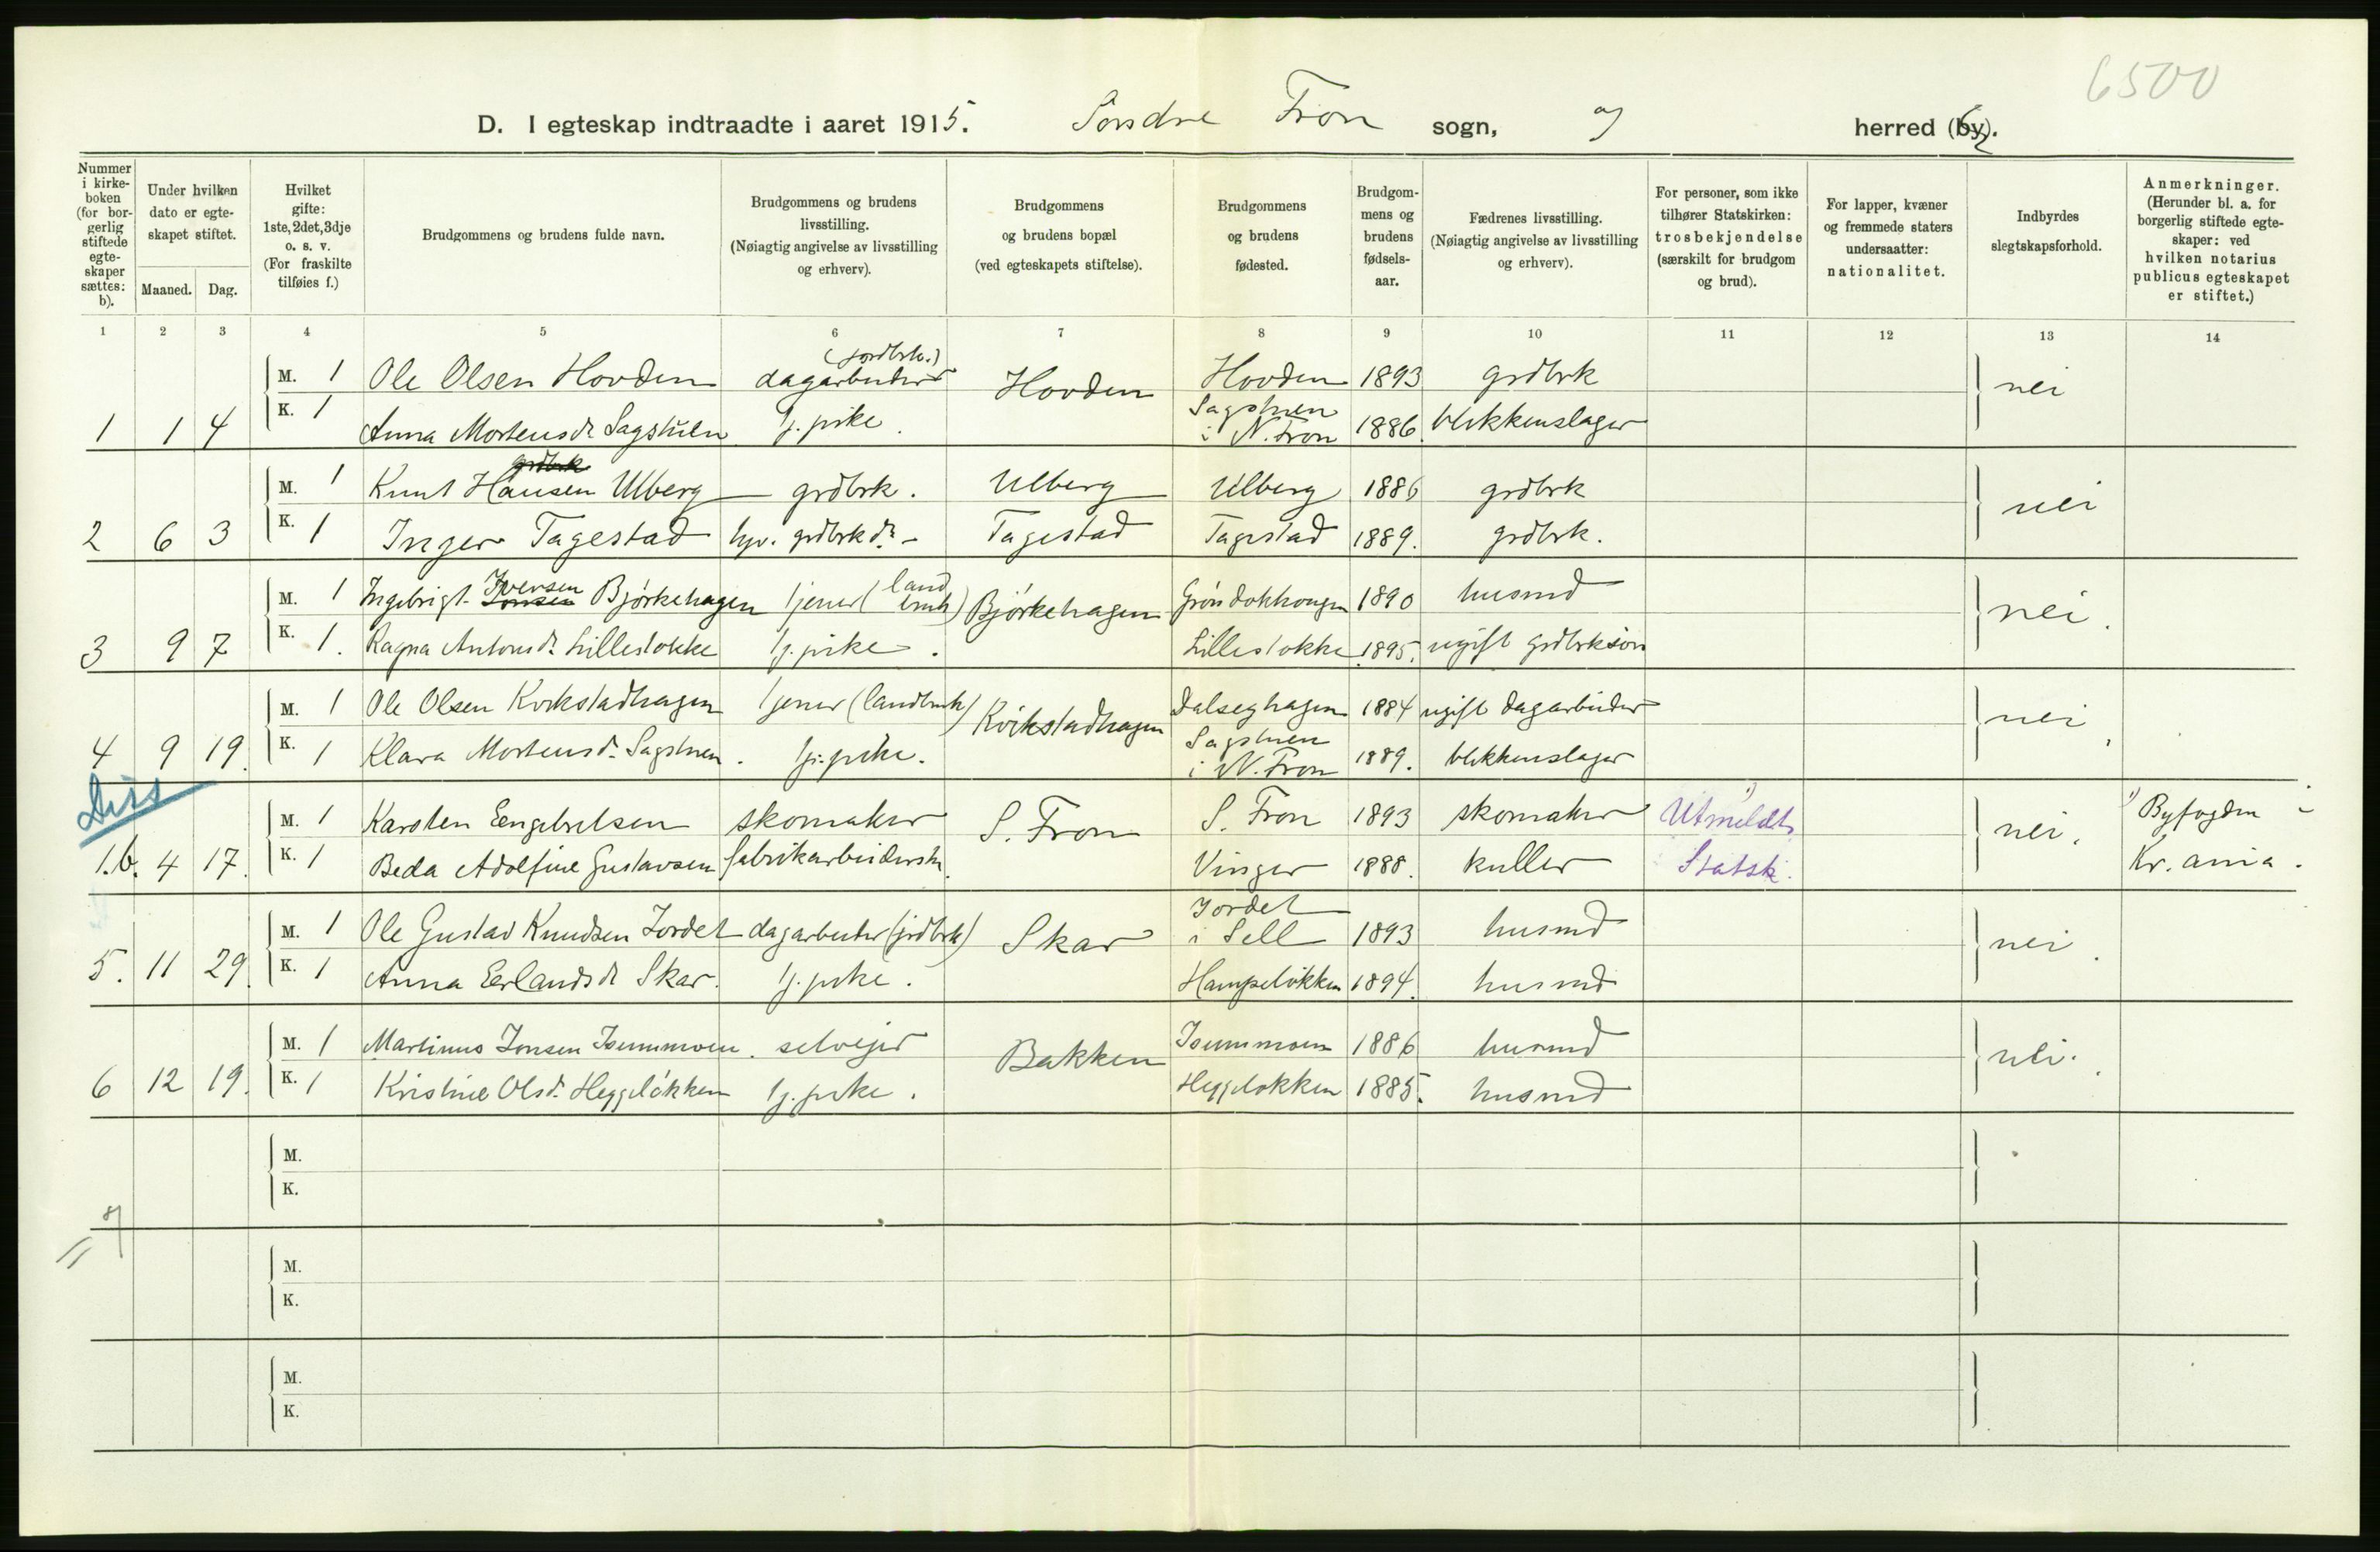 6500
D. I egteskap indtraadte i aaret 1915. Søndre Fron sogn, og herred (by).
Nummer i kirkeboken (for borgerlig stiftede egteskaper sættes: b).
Under hvilken dato er egteskapet stiftet.
Maaned. Dag.
Hvilket gifte: 1ste, 2det, 3dje o. s. v. (For fraskilte tilføies f.)
Brudgommens og brudens fulde navn.
Brudgommens og brudens livsstilling. (Nøiagtig angivelse av livsstilling og erhverv).
Brudgommens og brudens bopæl (ved egteskapets stiftelse).
Brudgommens og brudens fødested.
Brudgommens og brudens fødselsaar.
Fædrenes livsstilling. (Nøiagtig angivelse av livsstilling og erhverv).
For personer, som ikke tilhører Statskirken: trosbekjendelse (særskilt for brudgom og brud).
For lapper, kvæner og fremmede staters undersaatter: nationalitet.
Indbyrdes slegtskapsforhold.
Anmerkninger. (Herunder bl. a. for borgerlig stiftede egteskaper: ved hvilken notarius publicus egteskapet er stiftet.)
1 2 3 4 5 6 7 8 9 10 11 12 13 14
(jordbrk.)
M. 1 Ole Olsen Hovden dagarbeider Hovden Hovden 1893 grdbrk nei
1 1 4 K. 1 Anna Mortensdr. Sagstuen tj. pike. Sagstuen i N. Fron 1886. blikkenslager
grdbrk
M. 1 Knut Hansen Ulberg grdbrk. Ulberg Ulberg 1886 grdbrk nei
2 6 3 K. 1 Inger Tagestad hjv. grdbrkdr. Tagestad Tagestad 1889. grdbrk.
M. 1 Ingebrigt Iversen Jonsen Bjørkehagen tjener (landbruk) Bjørkehagen 1890 husmd nei.
3 9 7 K. 1. Ragna Antonsdr. Lilleslokke tj. pike. Lilleslokke 1895. ugift grdbrksøn
M. 1 Ole Olsen Kvikstadhagen tjener (landbruk) Kvikstadhagen Dalseghagen 1884 ugift dagarbeider nei.
4 9 19. K. 1 Klara Mortensdr. Sagstuen. tj. pike. Sagstuen i N. Fron 1889. blikkenslager
Diss
M. 1 Karsten Engebretsen skomaker S. Fron S. Fron 1893 skomaker 1) Utmeldt nei. 1) Byfogden i
1.b. 4 17. K. 1 Beda Adolfine Gustavsen fabrikarbeiderske. Vinger 1888. kuller Statsk. Kr.ania.
M. 1 Ole Gustav Knudsen Jordet dagarbeider (jrdbrk) Skar Jordet i Sell 1893 husmd nei.
5. 11 29. K. 1 Anna Erlandsdr Skar. tj. pike. Hampeløkken 1894. husmd
M. 1 Martinus Jonsen Isummoen. selveier Bakken Isummoen 1886 husmd nei.
6 12 19. K. 1 Kristine Olsdr. Heggeløkken tj. pike. Heggeløkken 1885. husmd
M.
K.
M.
K.
M.
K.